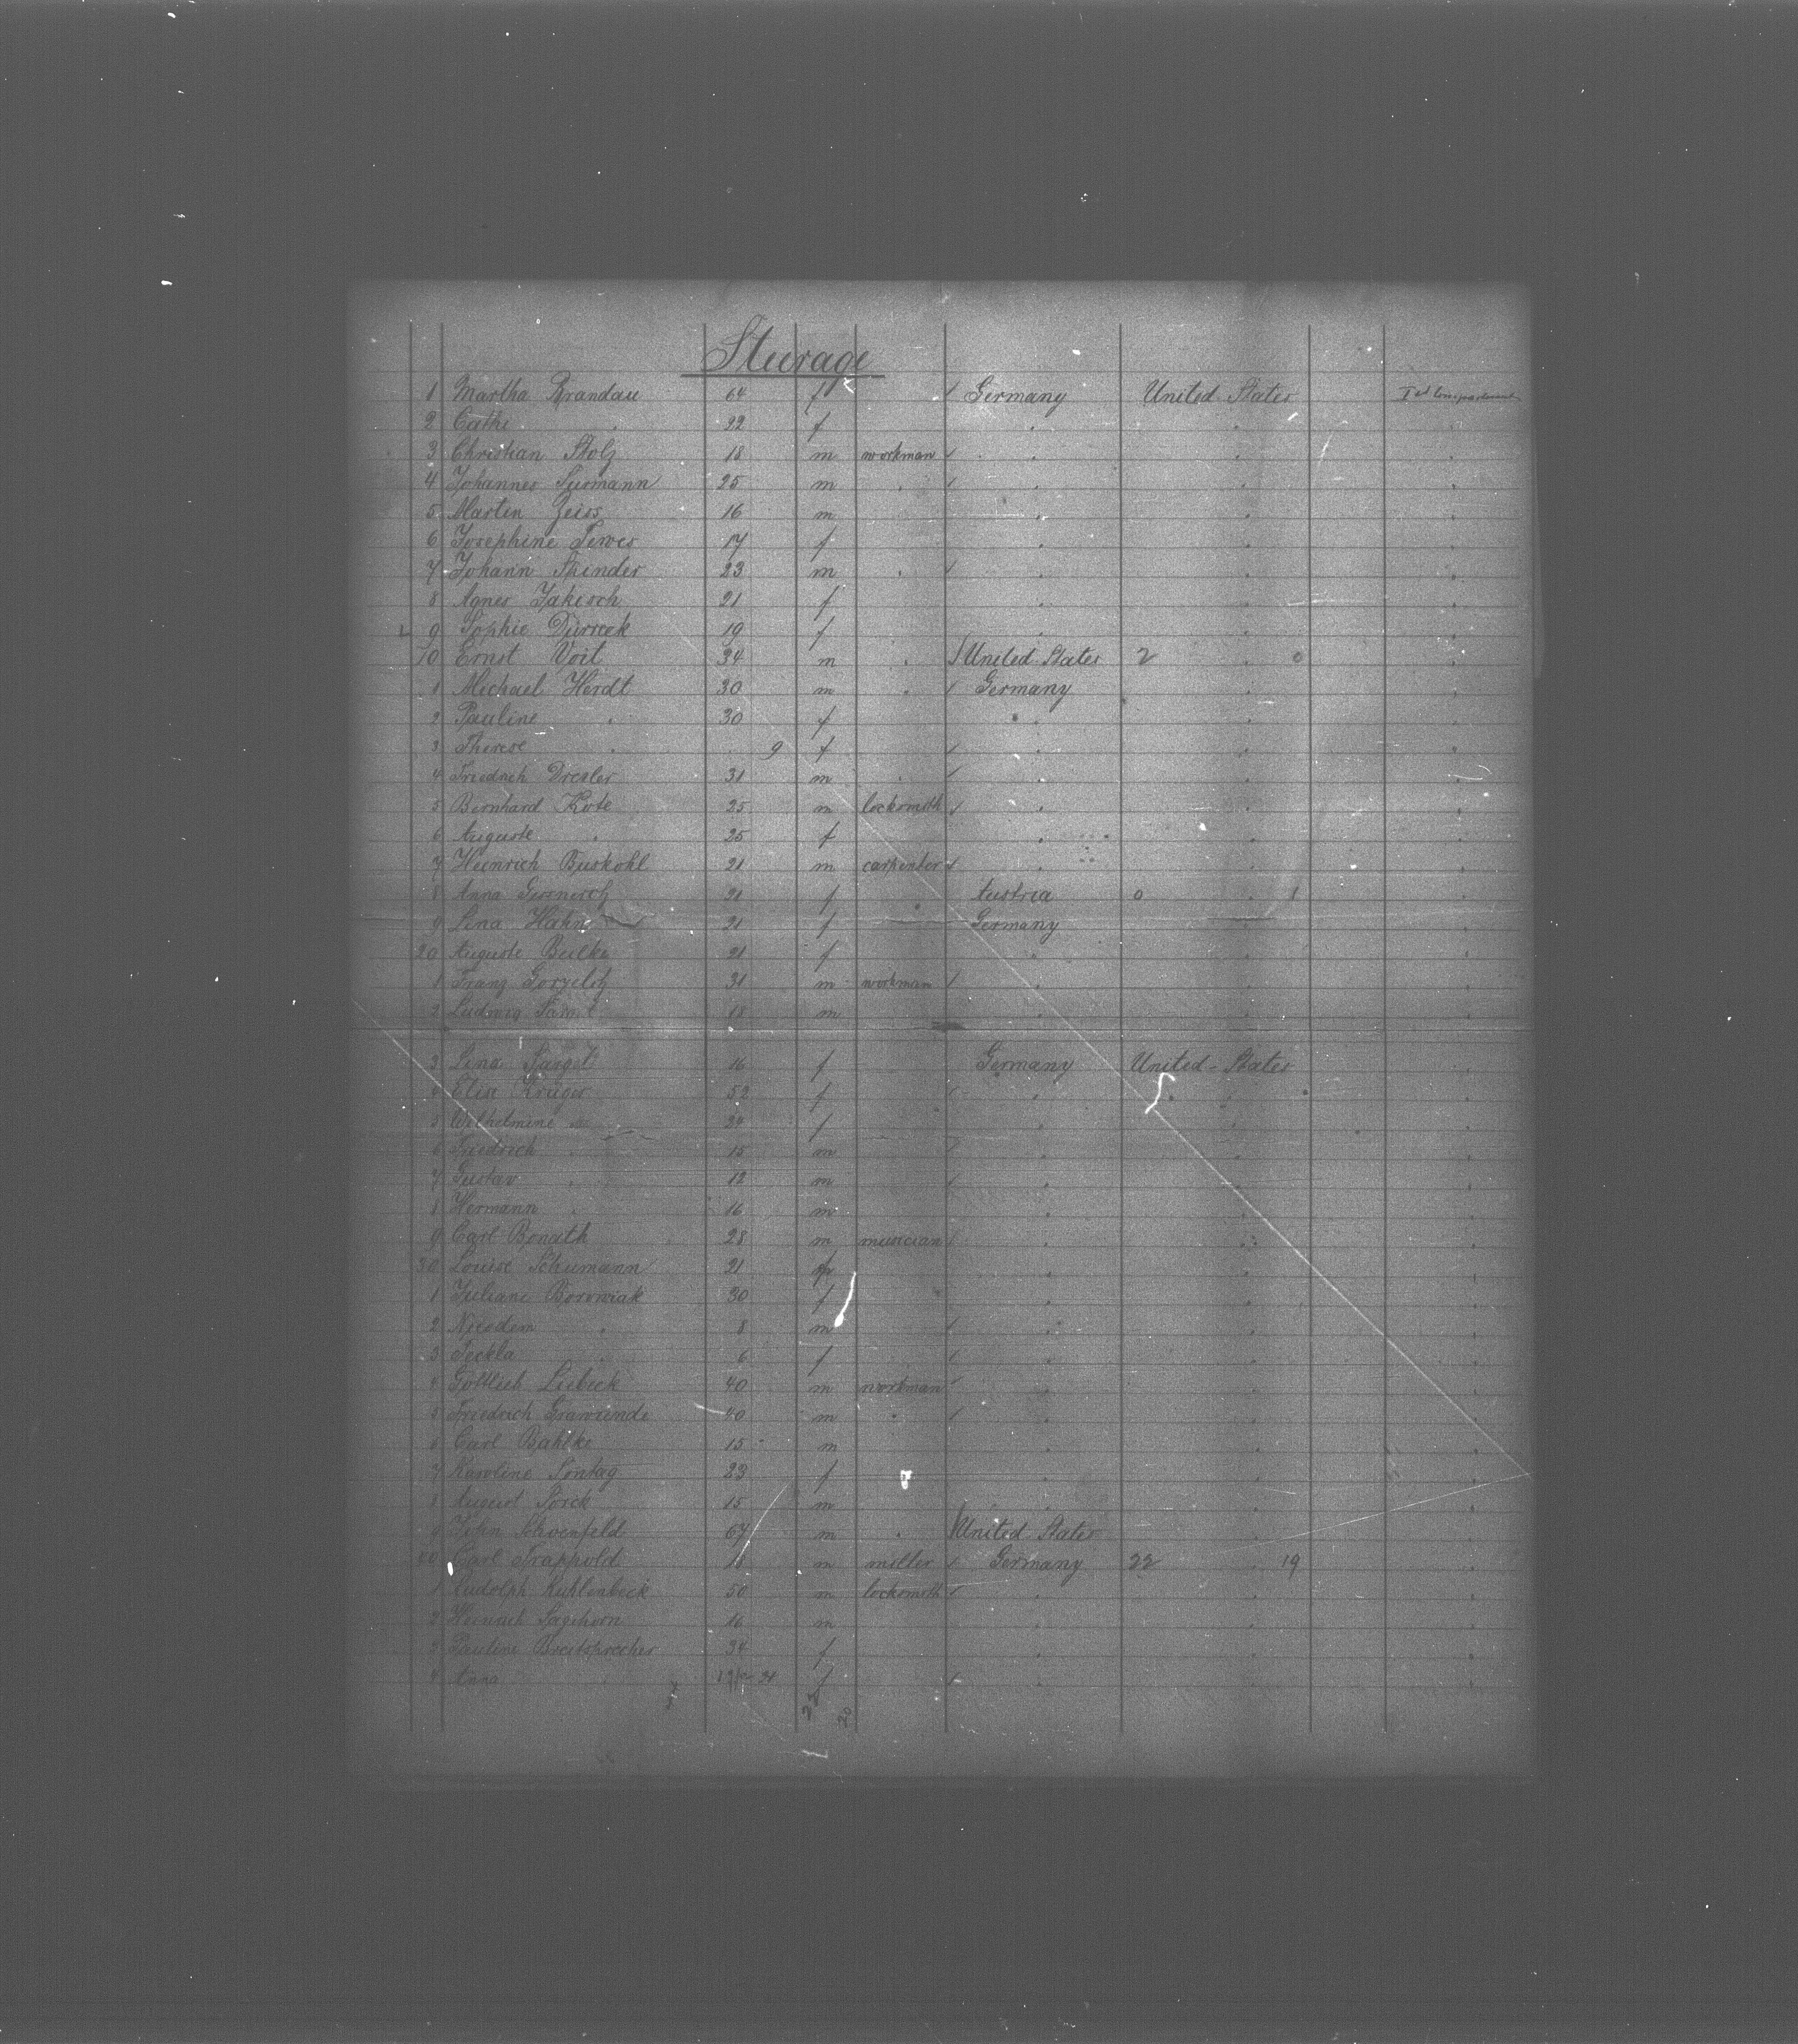 Steerage
1 Martha Brandau 64 f Germany United States Ist Compartment
2 Cathe . 22 f . . .
3 Christian Stolz 18 m workman . . .
4 Johannes Surmann 25 m . . . .
5 Martin Zeiss 16 m . . .
6 Josephine Tewes 17 f . . .
7 Johann Spinder 23 m . . . .
8 Agnes Jakisch 21 f . . .
9 Sophie 19 f . . .
10 Ernst Voit 34 m . United States 2 . 0 .
1 Michael Herdt 30 m . Germany .
2 Pauline . 30 f . . .
3 Therese . 9 f . . .
4 Friedrich Dresler 31 m . . . .
5 Bernhard Kote 25 m locksmith . . .
6 Auguste . 25 f . . .
7 Heinrich Buskohl 21 m carpenter . . .
8 Anna 21 f Austria 0 . 1 .
9 Lina Hahn 21 f Germany .
20 Auguste Beilke 21 f . . .
1 Franz 31 m workman . . .
2 Ludwig 18 m . . .
3 Lina 16 f Germany United-States .
4 Elise Krüger 52 f . . .
5 Wilhelmine 24 f . . .
6 Friedrich . 15 m . . .
7 Gustav . 12 m . . .
8 Hermann . 16 m . . .
9 Carl Bonath 28 m musician . . .
30 Louise Schumann 21 f . . .
1 Juliane Borowiak 30 f . . .
2 Nicodem . 8 m . . .
3 Teckla . 6 f . . .
4 Gottlieb Liebeck 40 m workman . . .
5 Friedrich 40 m . . . .
6 Carl Bahlke 15 m . . .
7 Karoline Sontag 23 f . . .
8 August 15 m . . .
9 John Schoenfeld 67 m . United States .
40 Carl Trappold 18 m miller Germany 22 . 19 .
1 Rudolph Kuhlenbeck 50 m locksmith . . .
2 Heinrich Sagehorn 16 m . . .
3 Pauline Breitsprecher 34 f . . .
4 Anna . f . . .